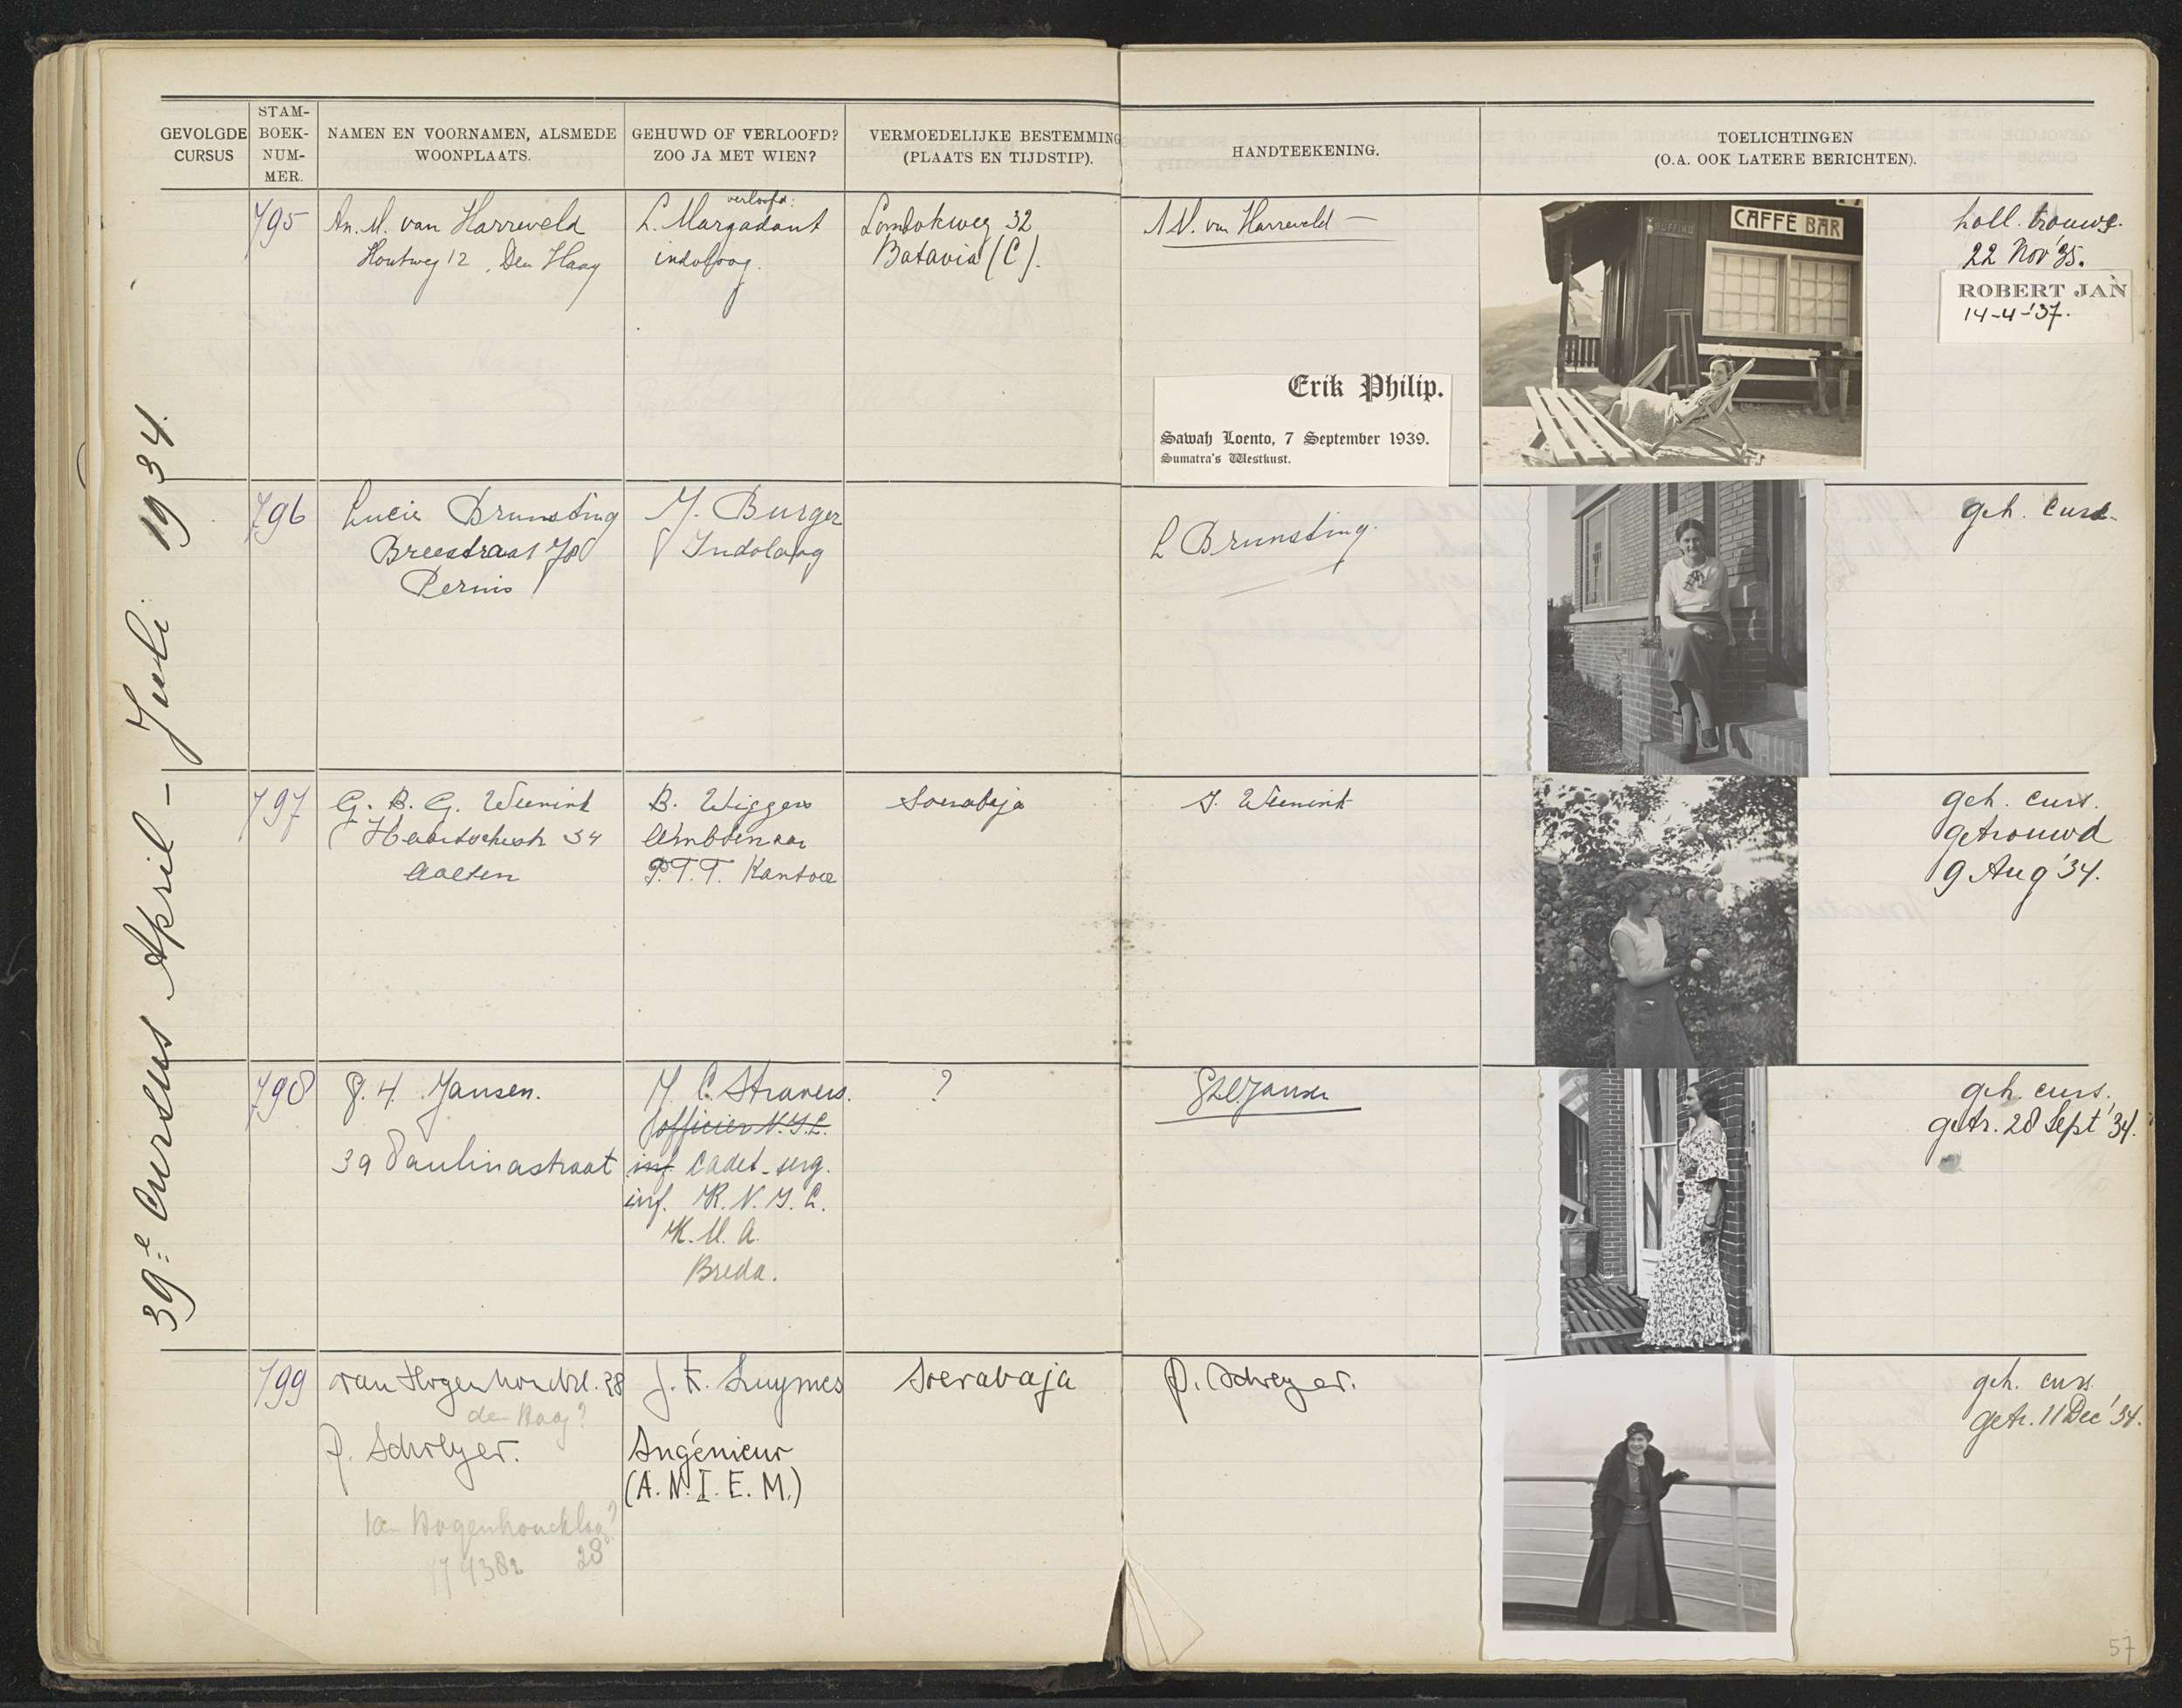 GEVOLGDE CURSUS
STAM-BOEK-NUM-MER.
NAMEN EN VOORNAMEN, ALSMEDE WOONPLAATS.
GEHUWD OF VERLOOFD? ZOO JA MET WIEN?
VERMOEDELIJKE BESTEMMING (PLAATS EN TIJDSTIP).
HANDTEEKENING.
TOELICHTINGEN
(O.A. OOK LATERE BERICHTEN).
39e Cursus April – Juli 1934.
795
An. M. van Harreveld
Houtweg 12, Den Haag
verloofd:
L. Margadant
indoloog.
Lombokweg 32
Batavia (C).
van Harreveld
Erik Philip.
Sawah Loento, 7 September 1939.
Sumatra's Westkust.
CAFFE BAR
holl. trouwe.
22 Nov '35.
ROBERT JAN
14-4-'37.
796
Lucie Brunsting
Breestraat 78
Pernis
J. Burger
Indoloog
L Brunsting.
geh. curs.
797
G. B. G. Weenink
34
Aalten
B. Wiggers
Ambtenaar
P.T.T. Kantoor
Soerabaja
Weenink
geh. curs.
getrouwd
9 Aug '34.
798
J. H. Jansen.
39 Paulinastraat
J. C. Stravers.
officier N.I.L.
inf. Cadet-serg.
inf. K. N. I. L.
K. M. A.
Breda.
?
Jansen
geh. curs.
getr. 28 Sept '34.
799
van Hogenhouckl.
den Haag?
P. Schreyer.
van Hogenhoucklaan?
28
J. F. Luymes
Ingénieur
(A. N. I. E. M.)
Soerabaja
P. Schreyer.
geh. curs.
getr. 11 Dec '34.
57